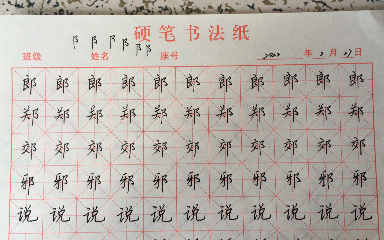 阝阝阝阝阝阝
硬笔书法纸
班级 姓名 座号 年 2 月 日
郎郎郎郎郎郎郎郎郎郎
郑郑郑郑郑郑郑郑郑郑
郊郊郊郊郊郊郊郊郊郊
邪邪邪邪邪邪邪邪邪邪
说说说说说说说说说说